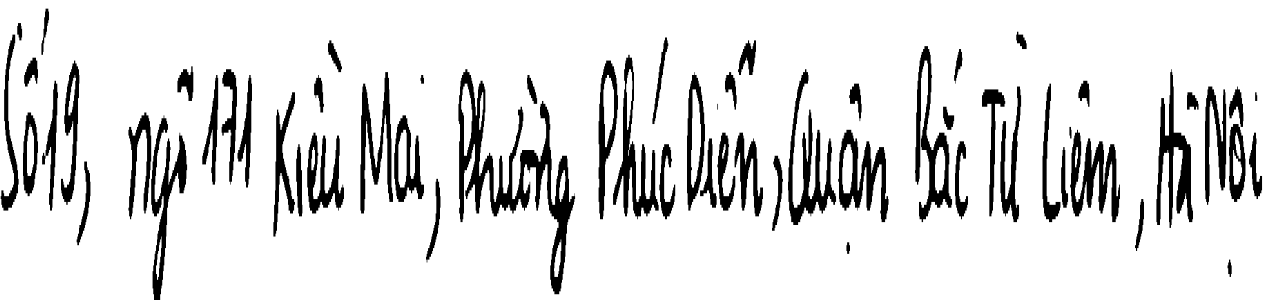 Số 19, ngõ 171 Kiều Mai, Phường Phúc Diễn, Quận Bắc Từ Liêm, Hà Nội